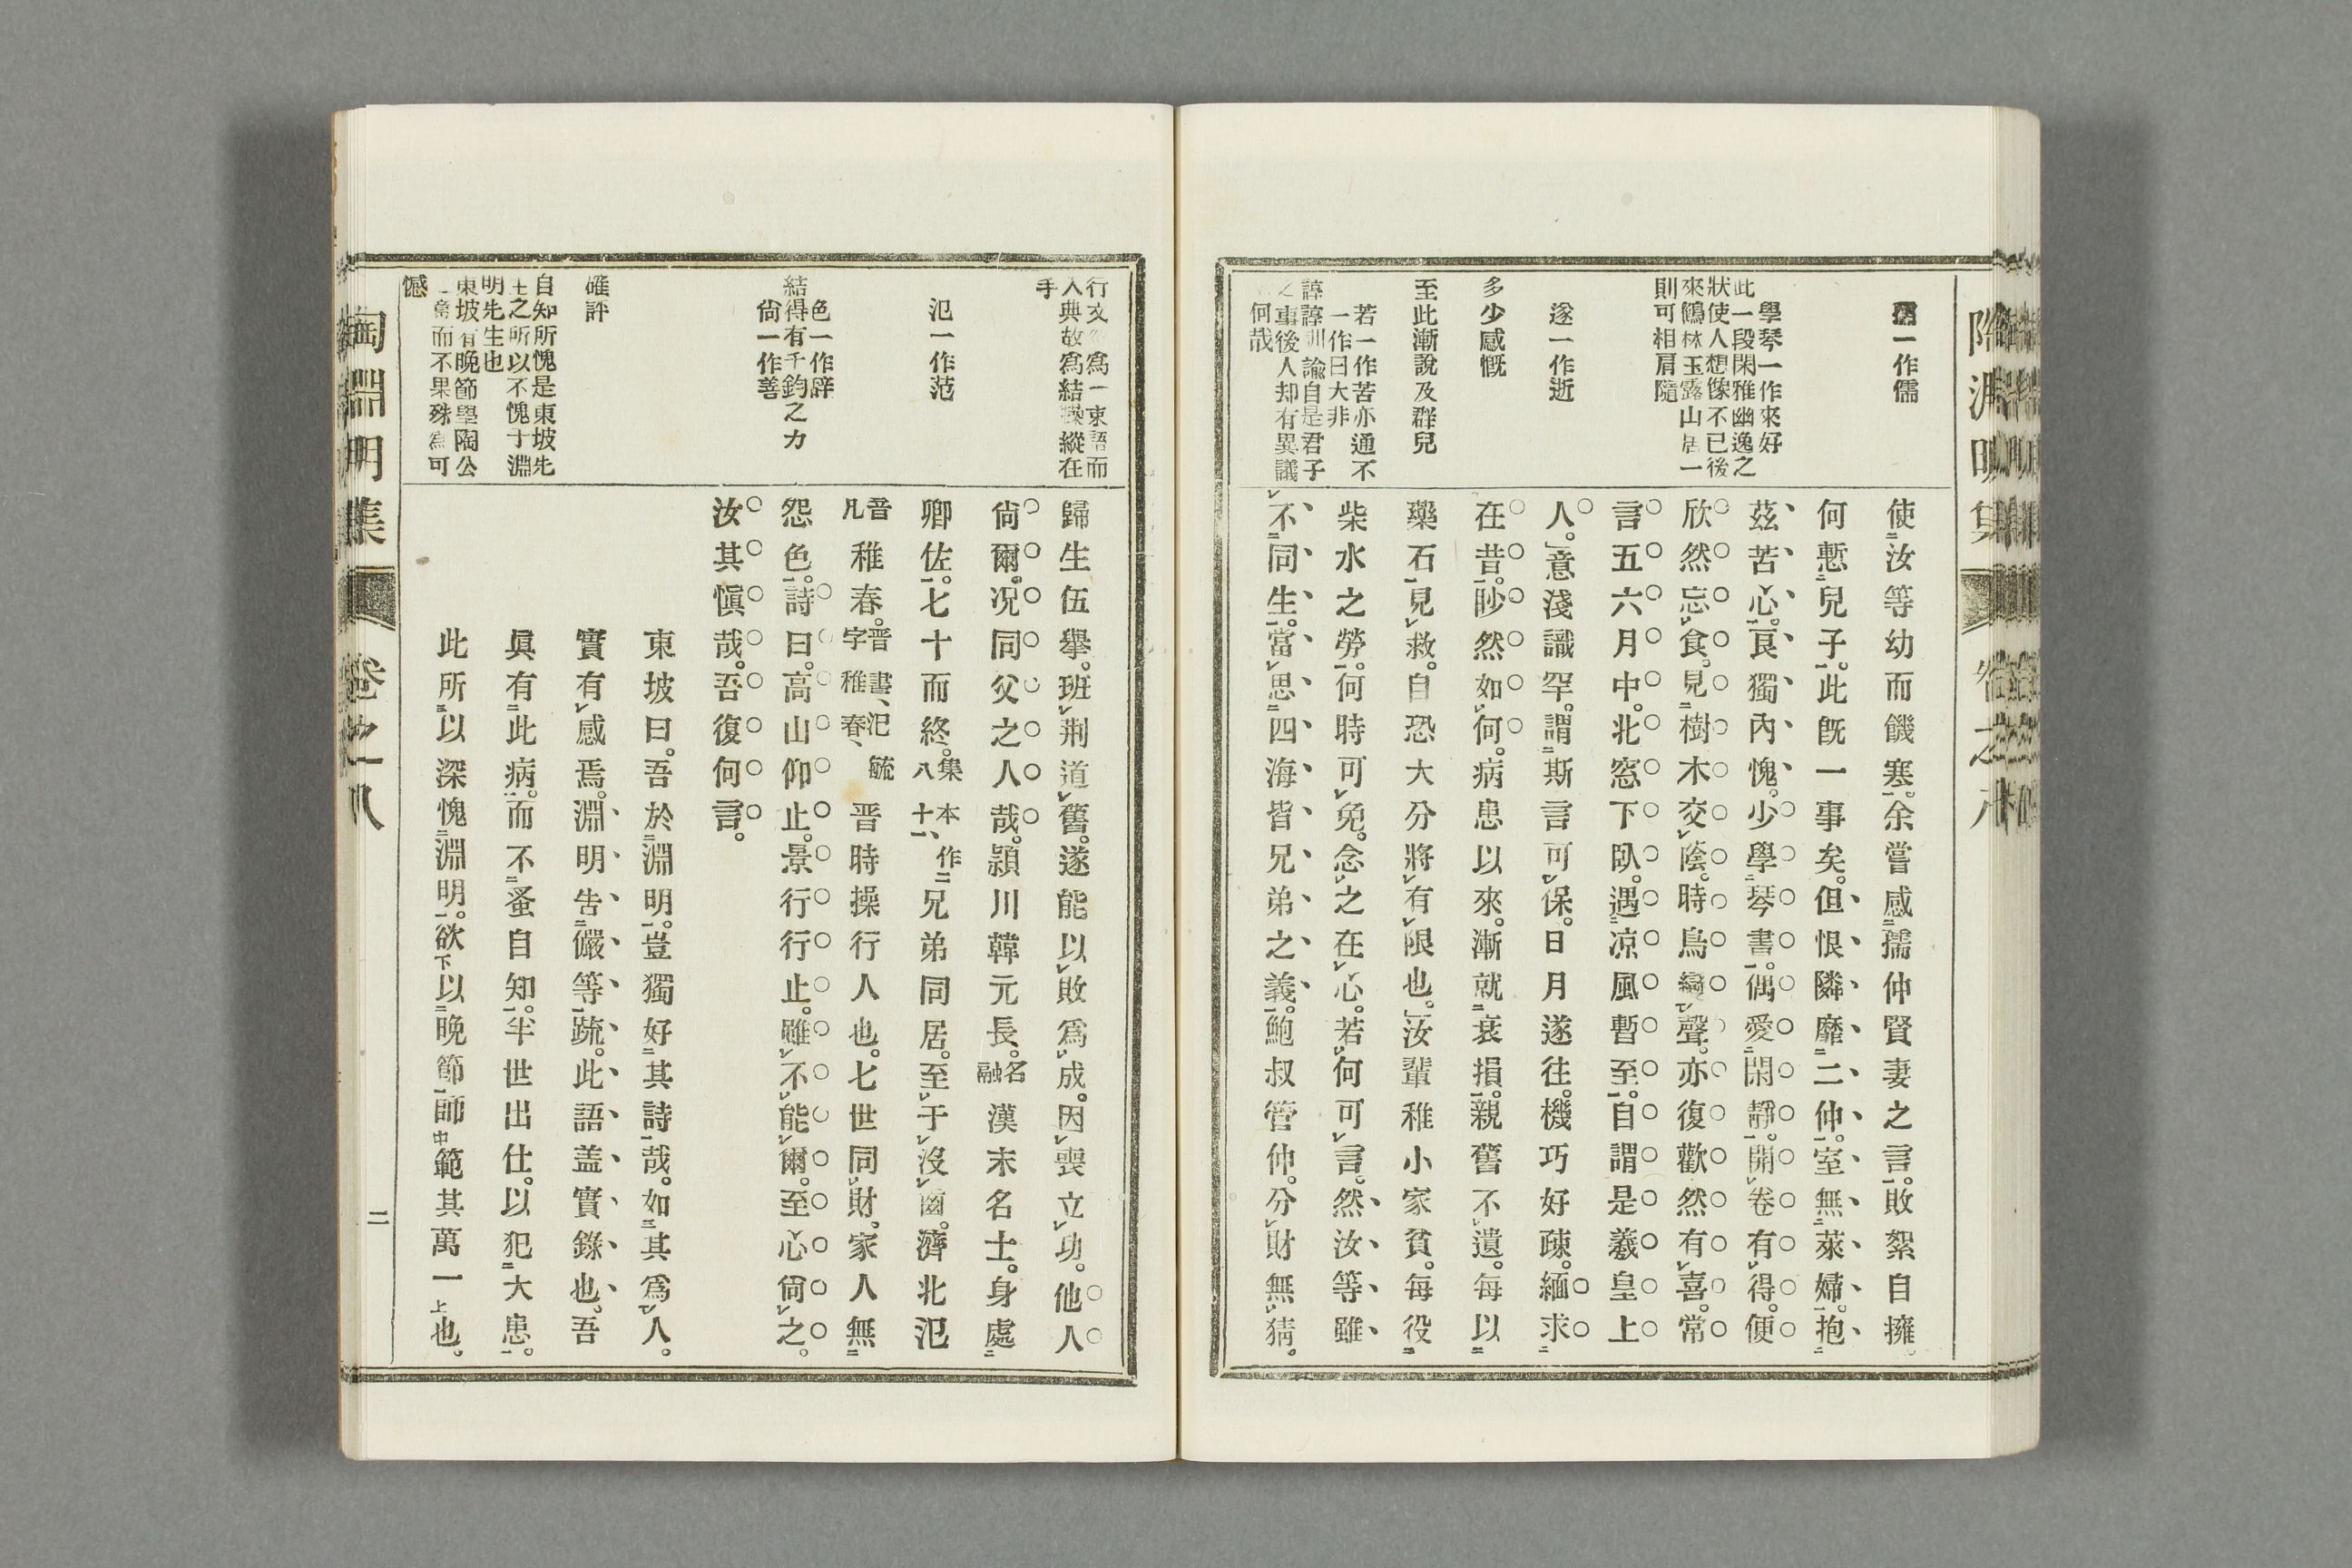 孺一作儒
學琴一作來好
此一段閑雅幽逸之
狀使人想像不已後
來鶴林玉露山居一
則可相肩隨
遂一作逝
多少感慨
至此漸說及群兒
若一作苦亦通不
一作曰大非
諄諄訓諭自是君子
之事後人却有異議
何哉
使汝等幼而饑寒。余嘗感孺仲賢妻之言。敗絮自擁。
何慙兒子。此既一事矣。但恨隣靡二仲。室無萊婦。抱
茲苦心。良獨內愧。少學琴書。偶愛閑靜。開卷有得。便
欣然忘食。見樹木交蔭。時鳥變聲。亦復歡然有喜。常
言五六月中。北窓下臥。遇凉風暫至。自謂是羲皇上
人。」意淺識罕。謂斯言可保。日月遂往。機巧好疎。緬求
在昔。眇然如何。病患以來。漸就衰損。親舊不遺。每以
藥石見救。自恐大分將有限也。」汝輩稚小家貧。每役
柴水之勞。何時可免。念之在心。若何可言。然汝等雖
不同生。當思四海皆兄弟之義。鮑叔管仲。分財無猜。
行文
爲一束語而
入典故爲結
縱在
手
氾一作范
色一作辭
結得有千鈞之力
尙一作善
確評
自知所愧是東坡先
生之所以不愧于淵
明先生也
東坡有晚節學陶公
之意而不果殊爲可
憾
歸生伍擧。班荆道舊。遂能以敗爲成。因喪立功。他人
尙爾。况同父之人哉。潁川韓元長。名融漢末名士。身處
卿佐。七十而終。集本作八十、兄弟同居。至于沒齒。濟北氾
晉凡稚春。晋書、氾毓字稚春、晋時操行人也。七世同財。家人無
怨色。詩曰。高山仰止。景行行止。雖不能爾。至心尙之。
汝其愼哉。吾復何言。
東坡曰。吾於淵明。豈獨好其詩哉。如其爲人。
實有感焉。淵明告儼等疏。此語盖實錄也。吾
眞有此病。而不蚤自知。半世出仕。以犯大患。
此所以深愧淵明。欲以晚節師範其萬一也。
陶淵明集 卷之八
二